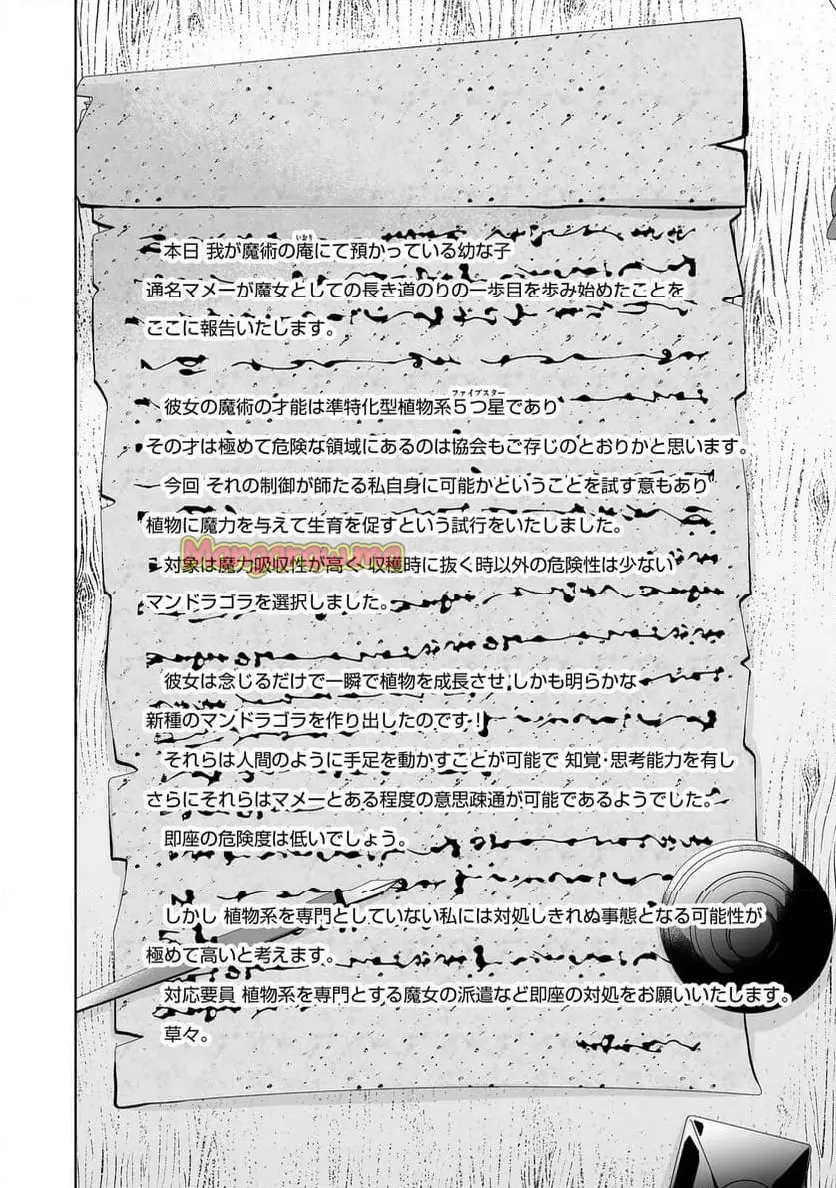 本日 我が魔術の庵にて預かっている幼な子
いおり
通名マメーが魔女としての長き道のりの一歩目を歩み始めたことを
ここに報告いたします。
彼女の魔術の才能は準特化型植物系5つ星であり
ファイブスター
その才は極めて危険な領域にあるのは協会もご存じのとおりかと思います。
今回 それの制御が師たる私自身に可能かということを試す意もあり
植物に魔力を与えて生育を促すという試行をいたしました。
対象は魔力吸収性が高く 収穫時に抜く時以外の危険性は少ない
マンドラゴラを選択しました。
彼女は念じるだけで一瞬で植物を成長させ しかも明らかな
新種のマンドラゴラを作り出したのです!
それらは人間のように手足を動かすことが可能で 知覚・思考能力を有し
さらにそれらはマメーとある程度の意思疎通が可能であるようでした。
即座の危険度は低いでしょう。
しかし 植物系を専門としていない私には対処しきれぬ事態となる可能性が
極めて高いと考えます。
対応要員 植物系を専門とする魔女の派遣など即座の対処をお願いいたします。
草々。